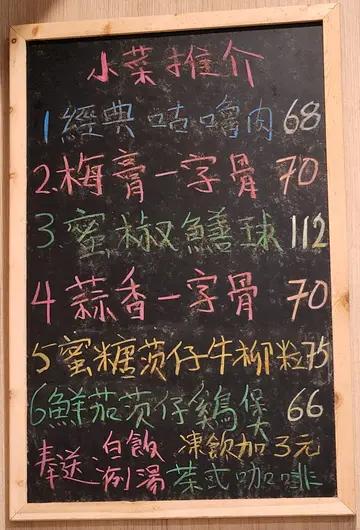 小菜推介
1 經典咕嚕肉 68
2.梅膏一字骨 70
3 蜜椒鱔球 112
4 蒜香一字骨 70
5 蜜糖茨仔牛柳粒 75
6 鮮茄茨仔鷄煲 66
奉送 白飯 例湯 凍飲加3元 茶或咖啡